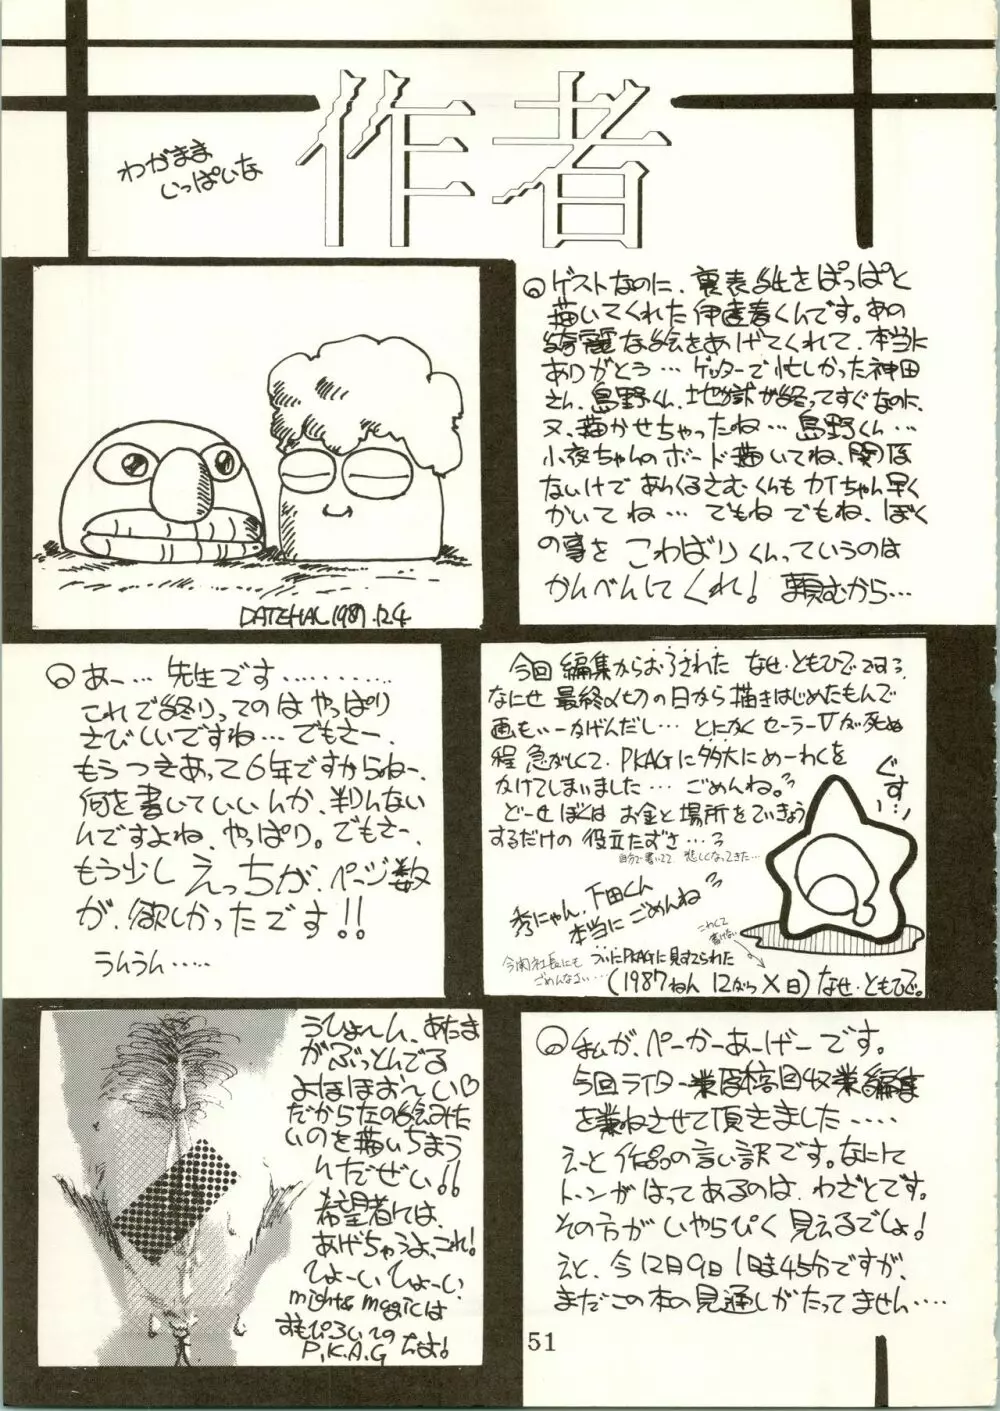 わがまま
いっぱいな
作者
ゲストなのに、裏表紙をぱっぱと
描いてくれた伊達春くんです。あの
綺麗な絵をあげてくれて、本当に
ありがとう… ゲッターで忙しかった神田
さん、島野くん、地獄が終ってすぐなのに、
又、描かせちゃったね… 島野くん…
小夜ちゃんのボード描いてね、関係
ないけであらくるさむくんもカイちゃん早く
かいてね… でもね でもね、ぼく
の事を こわばりくん、っていうのは
かんべんしてくれ! 頼むから…
DATEHAL 1987.12.4
あー… 先生です…………
これで終りってのはやっぱり
さびしいですね… でもさー、
もうつきあって6年ですからねー、
何を書いていいんか、判んない
んですよね、やっぱり。でもさー、
もう少し えっちが、ページ数
が、欲しかったです!!
うんうん……
今回 編集からおろされた なせ・ともひでです。
なにせ 最終〆切の日から描きはじめたもんで
画もいーかげんだし… とにかく セーラーVが死ぬ
程 急がしくて、PKAGに多大にめーわくを
かけてしまいました… ごめんね。
どーせぼくは お金と場所をていきょう
するだけの 役立たずさ…
自分で書いてて 悲しくなってきた…
ぐすっ…
秀にゃん、下田くん
本当にごめんね
こわくて
書けない
今関社長にも
ごめんなさい…
ついにPKAGに見すてられた
(1987ねん 12がつ X日) なせ・ともひで。
うひょ〜ん、あたま
がぶっとんでる
よほほお〜い♡
だから左の絵みた
いのを描いちまう
んだぜい!!
希望者には、
あげちゃうよ、これ!
ひょーいひょーい
might& magicは
すもぴろいての
P.K.A.G だよ!
私が、ぺーかーあーげーです。
今回ライター業原稿回収業編集
を兼ねさせて頂きました……
えーと 作品の言い訳です。なにげに
トーンがはってあるのは、わざとです。
その方が いやらぴく 見えるでしょ!
えと、今12月9日1時45分ですが、
まだこの本の見通しがたってません……
51